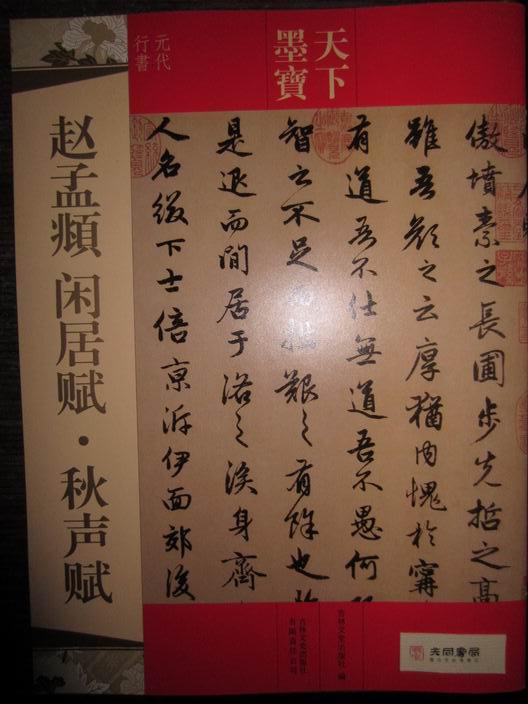 天下
墨寶
元代
行書
赵孟頫 闲居赋·秋声赋
傲墳素之長圃步先哲之高
雖吾顔之云厚猶内愧於寗
有道吾不仕無道吾不愚何
智之不足而拙艱之有餘也於
是退而閒居于洛之涘身齊
人名綴下士倍京泝伊面郊後
吉林文史出版社 編
吉林文史出版社